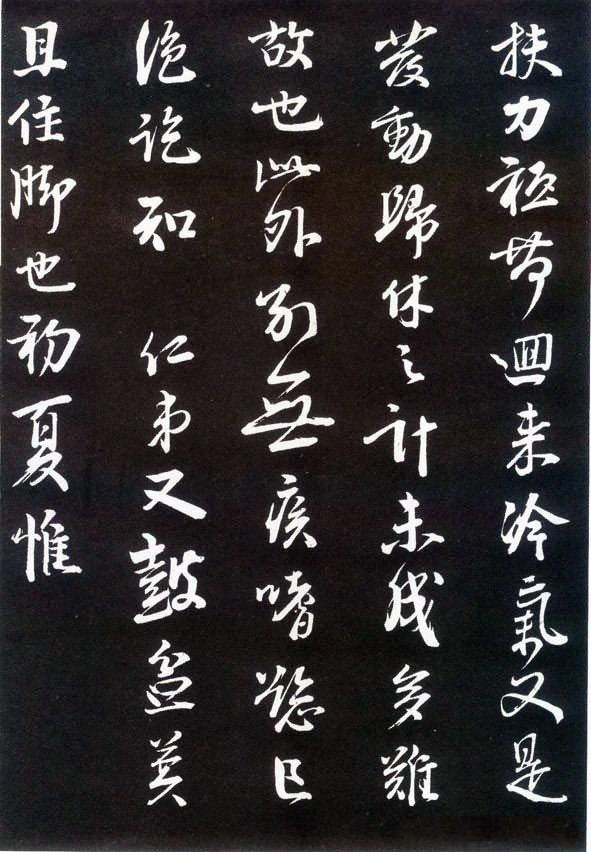 扶力祗帶迴来冷氣又是
發動歸休之計未成多難
故也此外別無疾嗜慾已
絶訖知 仁弟又鼓盆莫
且住脚也初夏惟